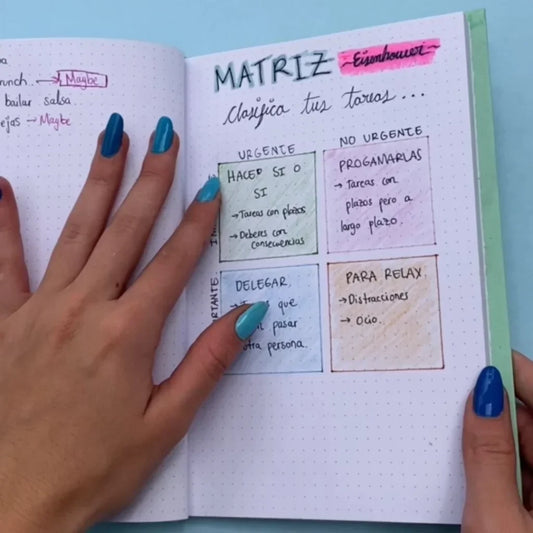 unch. → Maybe
bailar salsa
ejas → Maybe
MATRIZ ~Eisenhower~
Clasifica tus tareas...
URGENTE
NO URGENTE
HACER SI O
SI
→ Tareas con plazos
→ Deberes con
consecuencias
PROGAMARLAS
→ Tareas con
plazos pero a
largo plazo.
DELEGAR.
que
pasar
otra persona.
PARA RELAX.
→ Distracciones
→ Ocio.